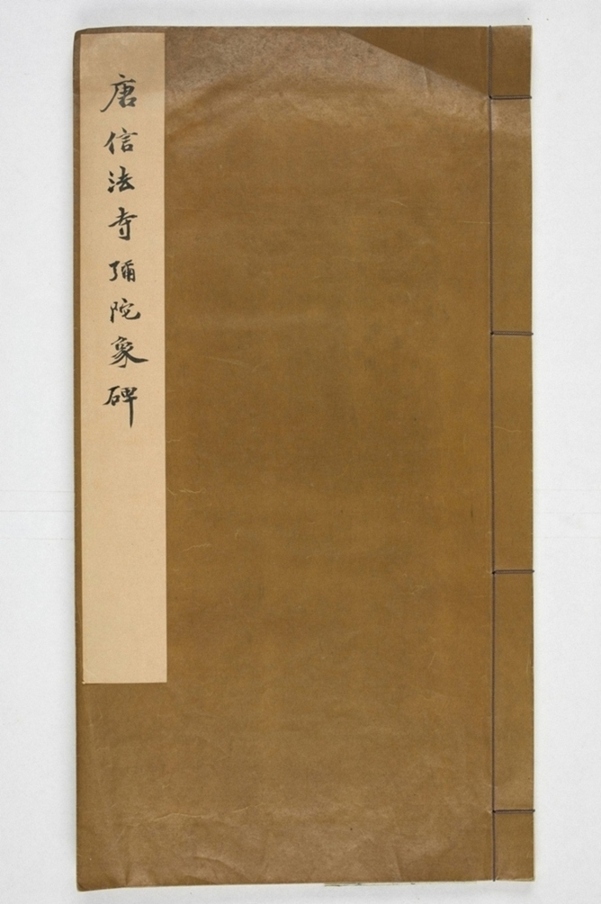 唐信法寺彌陀象碑